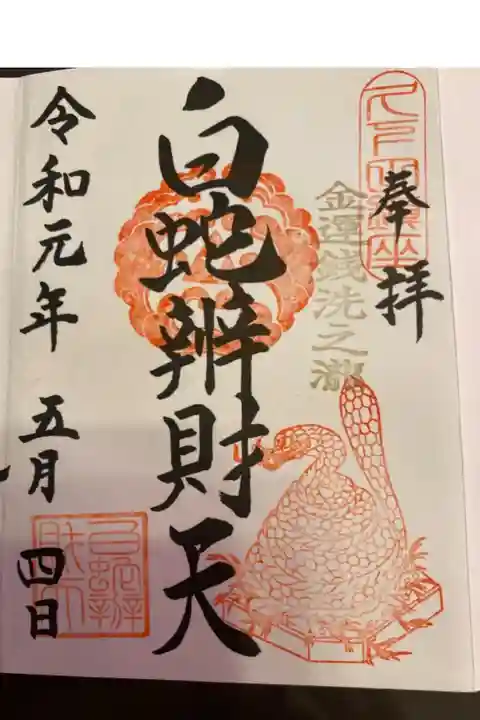 奉拝
金運銭洗之瀧
白蛇辨財天
令和元年 五月 四日